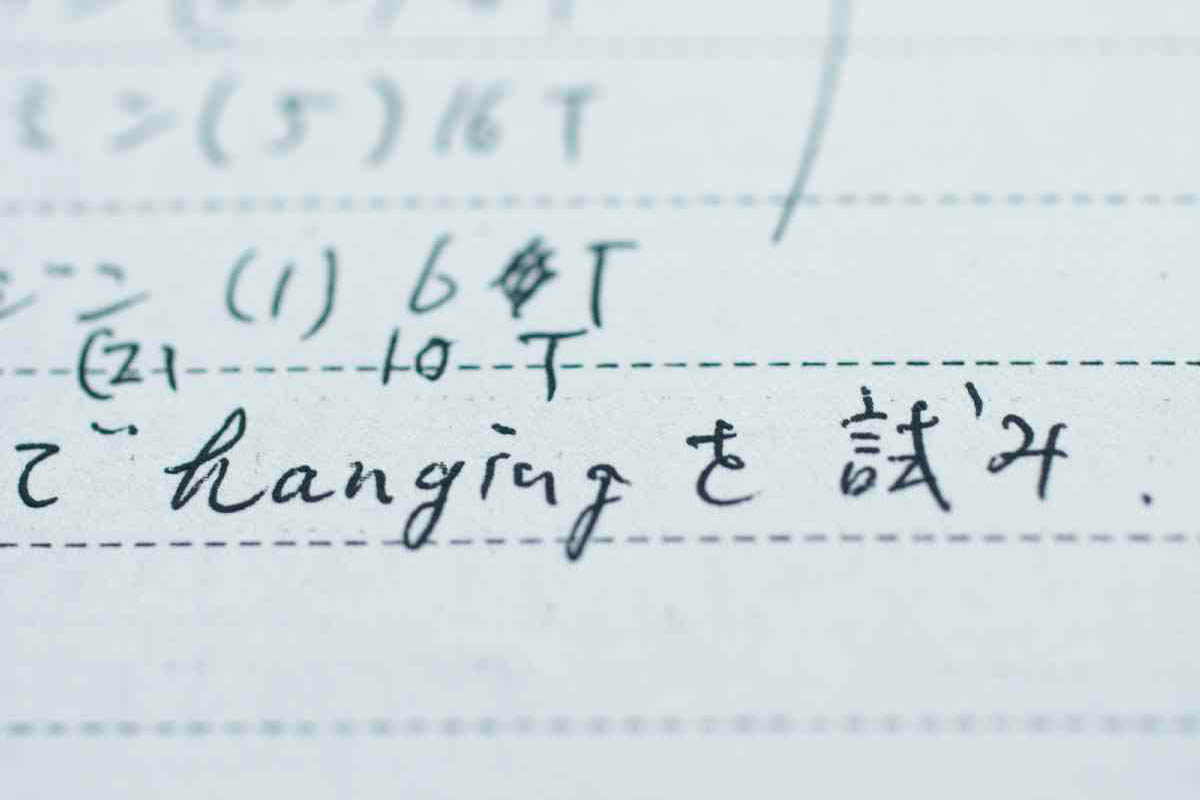 (5) 16 T
(1) 6 T
(2) 10 T
で hanging を 試み.